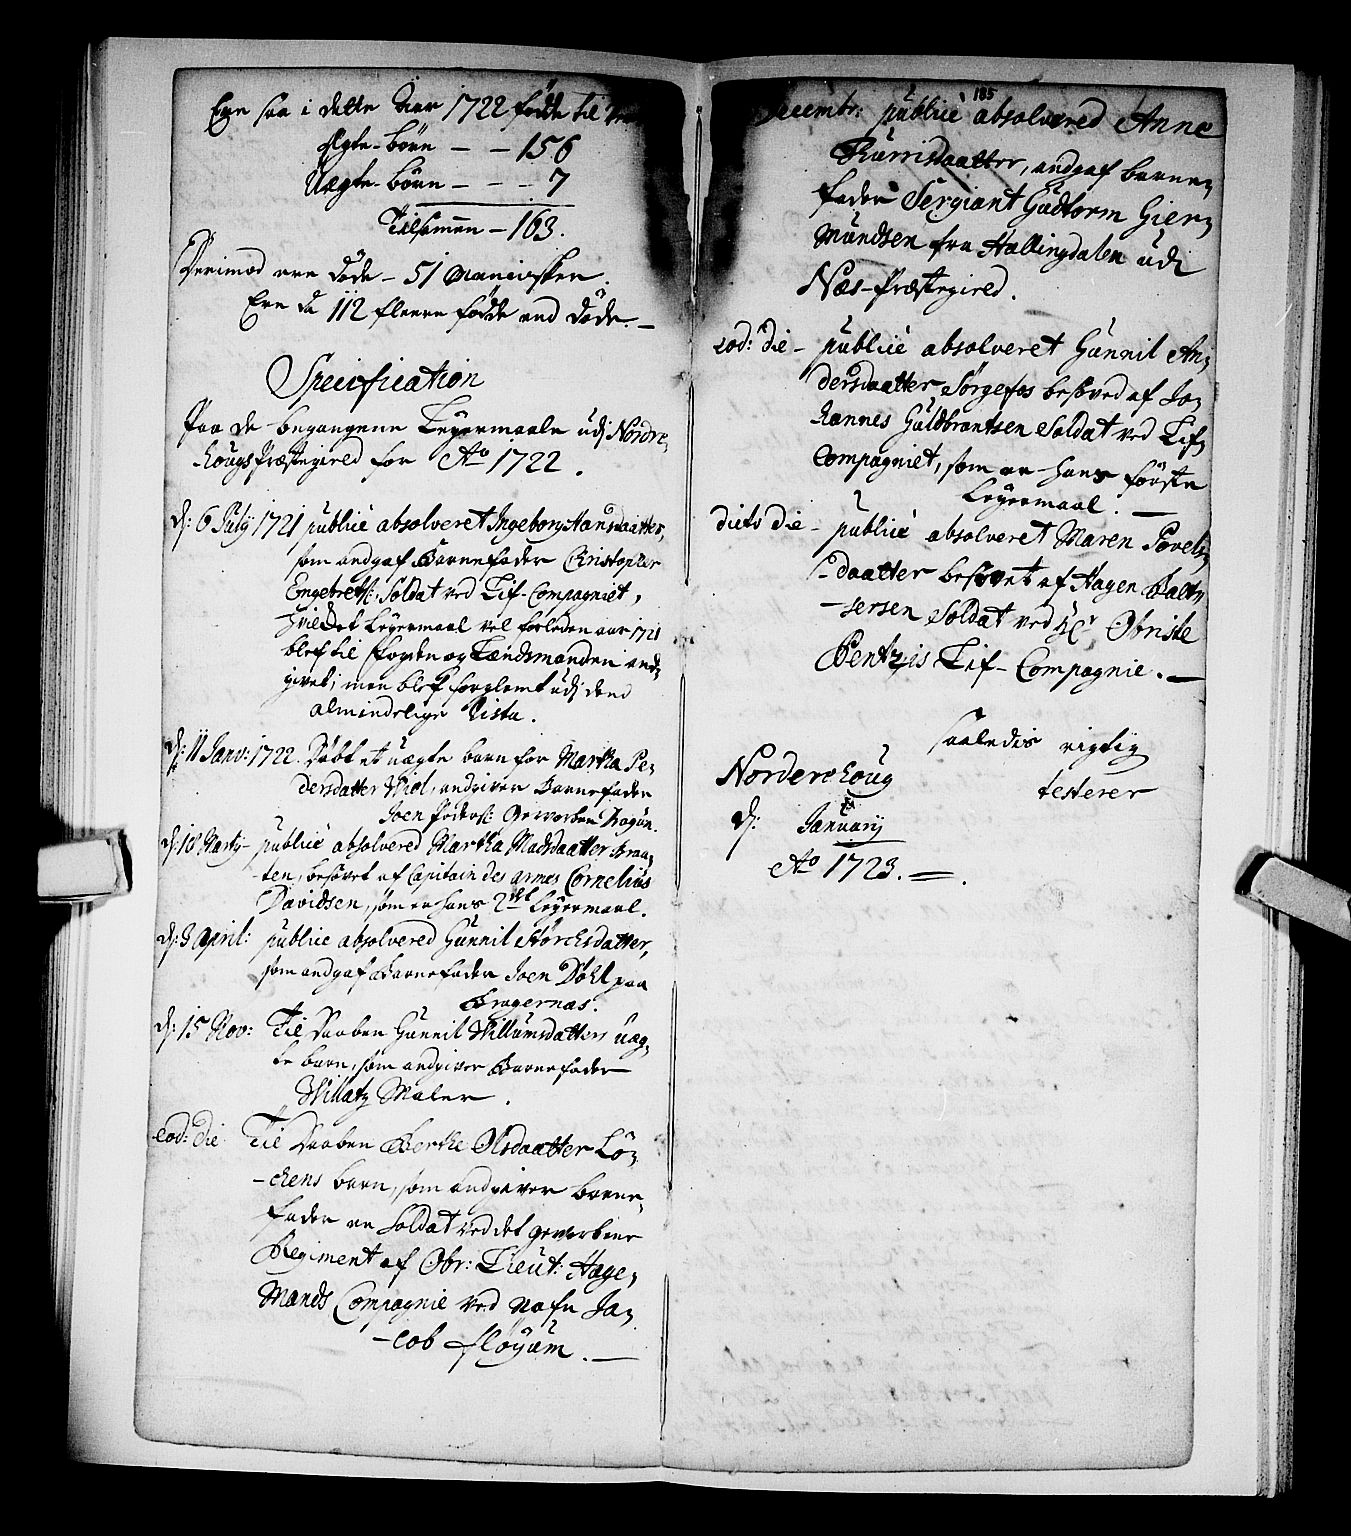 Ere saa i dette Aar 1722 fødde til
Ægte-børn – – 156
Uægte-børn – – – 7
Tilsamen – 163.
Derimod ere døde – 51 Mennisker.
Ere da 112 fleere fødde end døde. –
Specification
Paa de begangene Leyermaale udj Nordre-
hougs Præstegield for Ao 1722.
dj: 6 Julij 1721 publicè absolveret Ingeborg Hansdaatter,
som andgaf Barnefader Christopher
Engebretss: Soldat ved Lif-Compagniet,
hvilcket Leyermaal vel forleden aar 1721
blef til Fogden og Lændsmanden and-
givet; men blef forglemt udj dend
almindelige Lista.
dj: 11 Janv: 1722. Døbt et uægte barn for Martha Pe-
dersdatter Hiol, andgiven Barnefader
Joen Peders: Geworben Dragun.
dj: 18 Martij – publicè absolvered Martha Madsdaatter Braa-
ten, besovet af Capitain des armes Cornelius
Davidsen, som er hans 2det Leyermaal.
dj: 3 April: publice absolvered Gunnil Størchsdatter,
som andgaf Barnefader Joen Døhl paa
Bragernæs.
dj: 15 Nov: Til Daaben Gunnil Willumsdatters uæg-
te barn, som andgiver Barnefader
Willatz Maler.
eod: die Til Daaben Berthe Olsdaatter Lø-
-kens barn, som andgiver barne-
fader en Soldat ved det geworbene
Regiment af Obr: Lieut: Hage-
mands Compagnie ved Nafn Ja-
-cob Fløyum. –
185
Decembr: publicè absolvered Anne
Thurrisdaatter, andgaf barne-
fader Sergiant Gudtorm Gier-
mundsen fra Hallingdalen udi
Næs-Præstegield.
eod: die – publicè absolveret Gunnil An-
dersdaatter Sørgefos besoved af Jo-
hannes Guldbrantsen Soldat ved Lif-
Compagniet, som er hans første
Leyermaal. –
dicto die – publicè absolveret Maren Povels-
-daatter besovet af Hagen Balt-
-zersen Soldat ved Hr Obriste
Bentzis Lif-Compagnie. –
saaledis rigtig
Norderehoug
testerer
dj: January
Ao 1723.